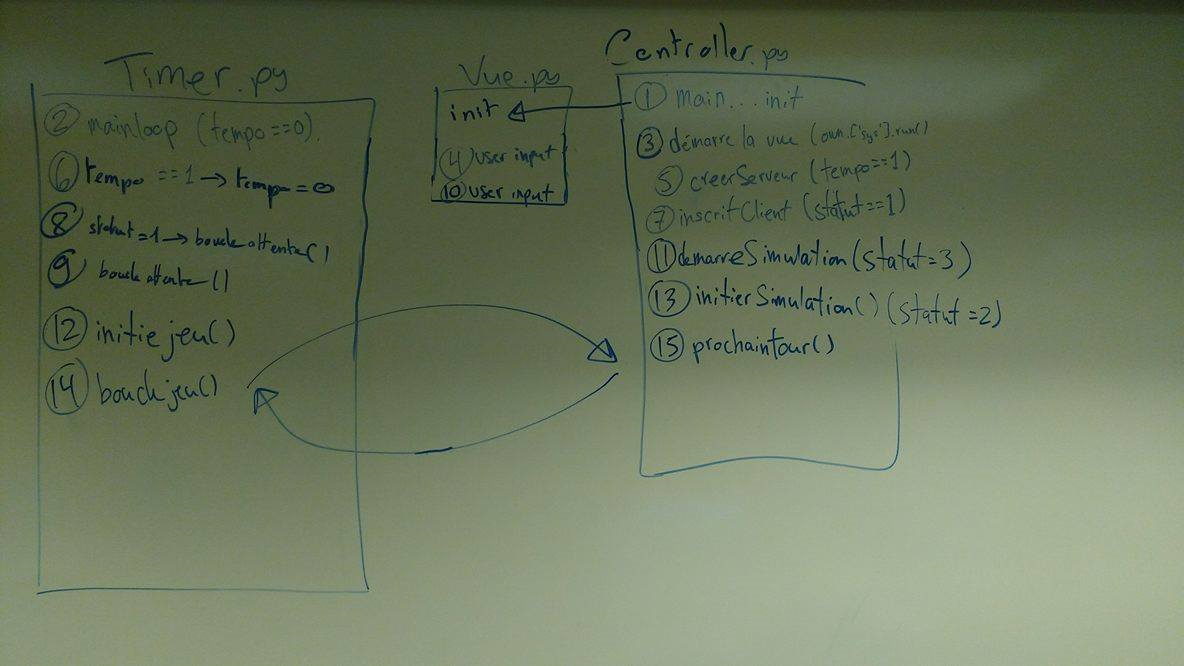 Timer.py
② mainloop (tempo==0).
⑥ tempo ==1 → tempo=0
⑧ statut=1 → boucle attente()
⑨ boucle attente()
⑫ initie jeu()
⑭ boucle jeu()
Vue.py
init
④ user input
⑩ user input
Controller.py
① main...init
③ démarre la vue (own.['sys'].run()
⑤ creerServeur (tempo==1)
⑦ inscritClient (statut==1)
⑪ demarreSimulation (statut=3)
⑬ initierSimulation() (statut=2)
⑮ prochaintour()